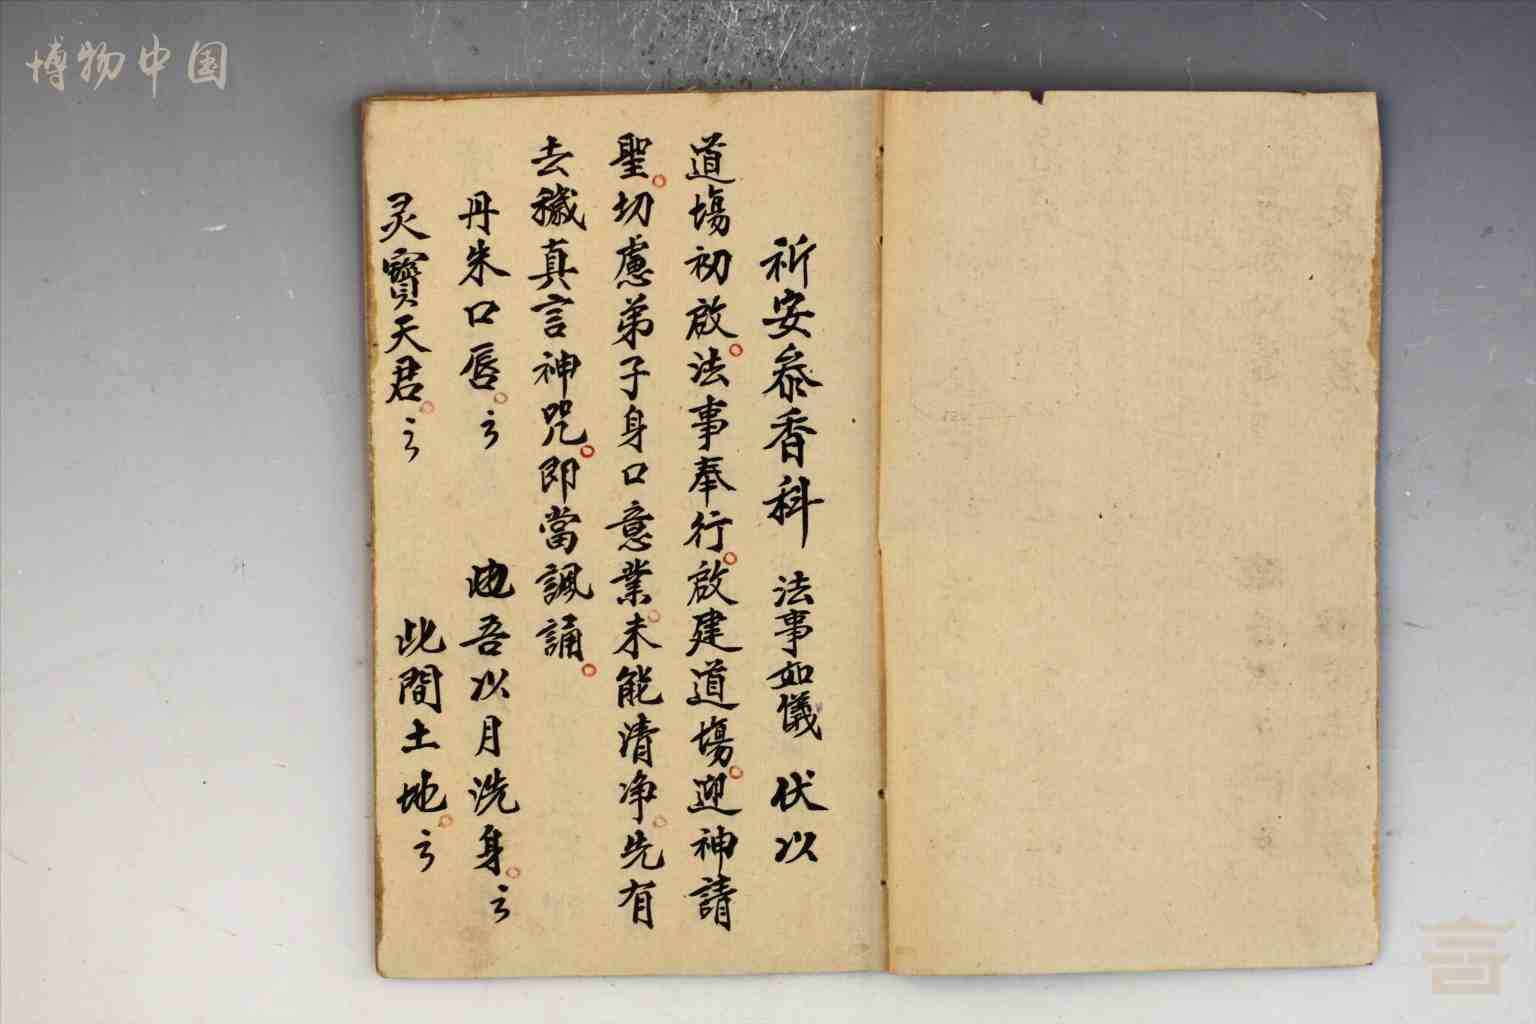 博物中国
祈安叅香科 法事如儀 伏以
道塲初啟。法事奉行。啟建道塲。迎神請
聖。切慮弟子身口意業。未能清净。先有
去穢真言神咒。即當諷誦。
丹朱口唇。云 吾以月洗身。云
灵寶天君。云 此間土地。云